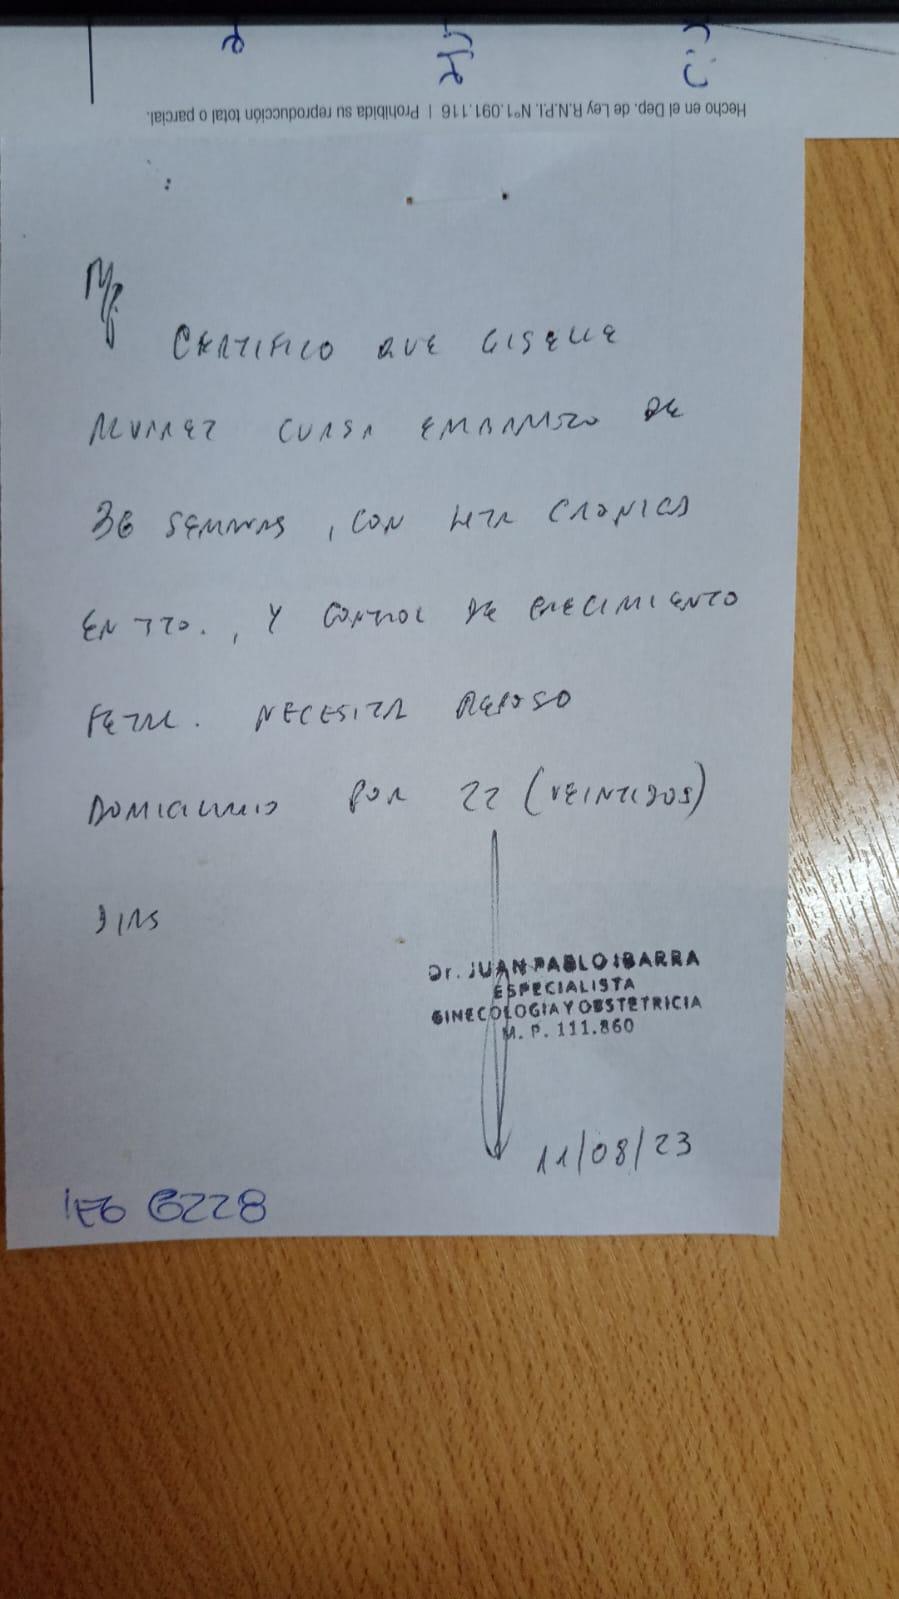 Hecho en el Dep. de Ley R.N.P.I. Nº1.091.116 | Prohibida su reproducción total o parcial.
CERTIFICO QUE GISELLE
ALVAREZ CURSA EMBARAZO DE
36 SEMANAS, CON HTA CRONICA
EN TTO., Y CONTROL DE CRECIMIENTO
FETAL. NECESITA REPOSO
DOMICILIARIO POR 22 (VEINTIDOS)
DIAS
Dr. JUAN PABLO IBARRA
ESPECIALISTA
GINECOLOGIA Y OBSTETRICIA
M. P. 111.860
11/08/23
6228